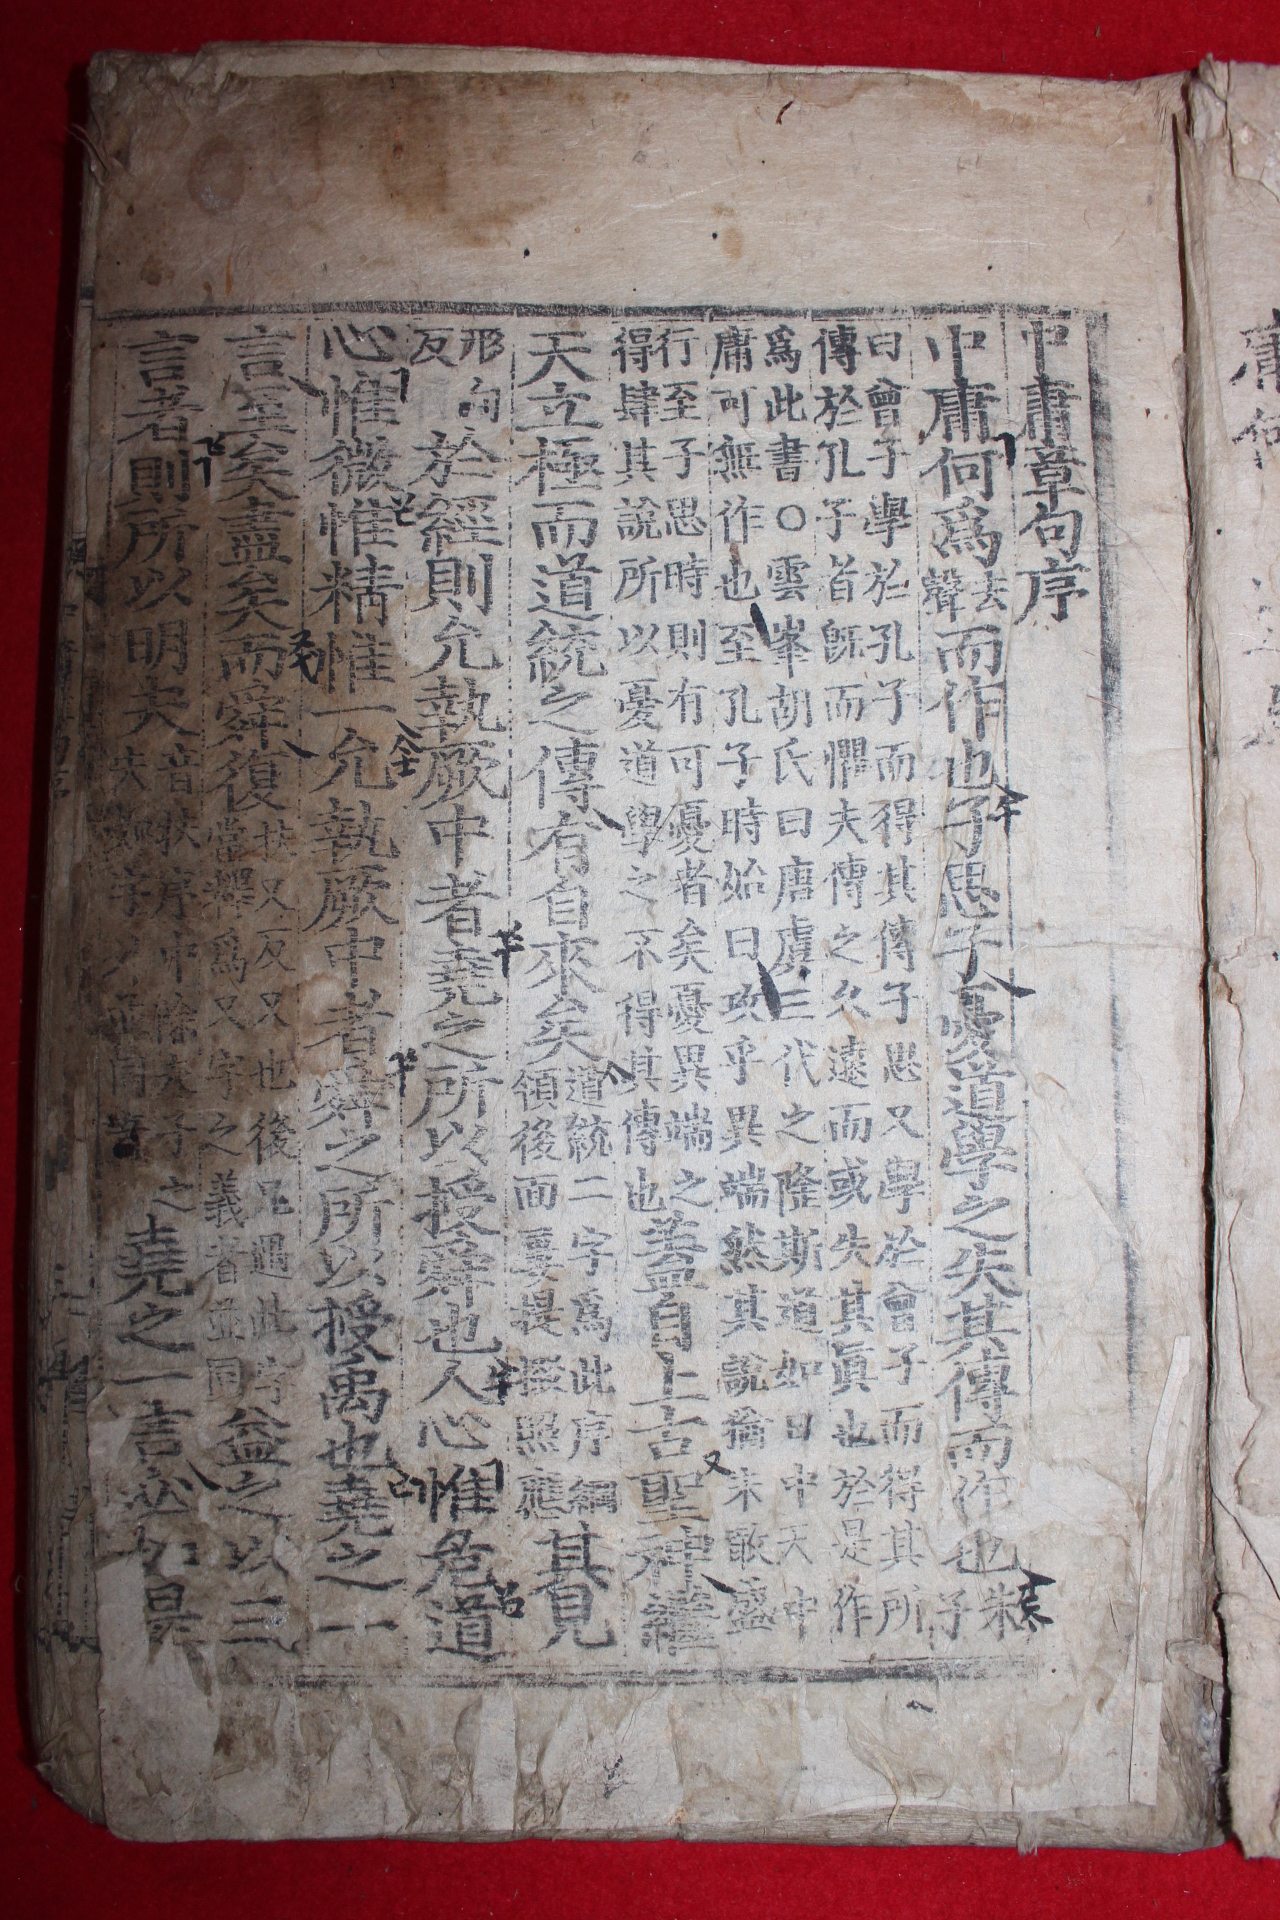 中庸章句序
中庸何爲去聲而作也子思子憂道學之失其傳而作也朱子
曰曾子學於孔子而得其傳子思又學於曾子而得其所
傳於孔子者旣而懼夫傳之久遠而或失其眞也於是作
爲此書○雲峯胡氏曰唐虞三代之隆斯道如日中天中
庸可無作也至孔子時始曰攻乎異端然其說猶未敢盛
行至子思時則有可憂者矣憂異端之
得肆其說所以憂道學之不得其傳也
蓋自上古聖神繼
天立極而道統之傳有自來矣道統二字爲此序綱
領後面屢提掇照應
其見
形甸
反
於經則允執厥中者堯之所以授舜也人心惟危道
心惟微惟精惟一允執厥中者舜之所以授禹也堯之一
言至矣盡矣而舜復扶又反又也後凡遇此字
當釋爲又字之義者並同
益之以三
言者則所以明夫音扶序中除夫子之
夫
堯之一言必如是